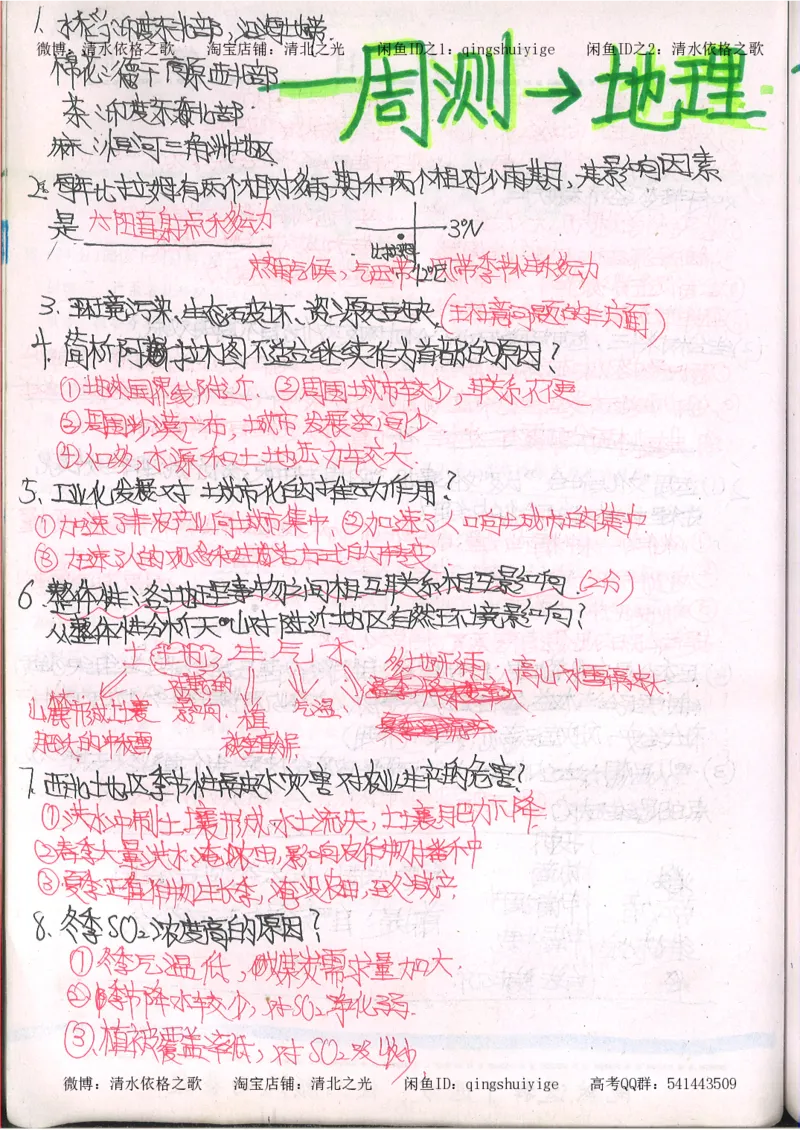 1. 水稻：印度东北部，沿海地带
微博：清水依格之歌 淘宝店铺：清北之光 闲鱼ID之1：qingshuiyige 闲鱼ID之2：清水依格之歌
棉花：德干高原西北部
一周测→地理
茶：印度东北部
麻：恒河三角洲地区
2. 每年比拉姆有两个相对多雨期和两个相对少雨期，其影响因素
是 太阳直射点移动
3°N
气候，气压带、风带季节性移动
3. 环境污染、生态破坏、资源短缺，(环境问题的三方面)
4. 简析阿拉木图不适合继续作为首都的原因？
①地处国界线附近 ②周围城市较少，联系不便
③周围沙漠广布，城市发展空间少
④人口多，水源和土地压力较大
5. 工业化发展对城市化的推动作用？
①加速了非农产业向城市集中 ②加速了人口向城市的集中
③加速了人的观念和生活方式的大转变
6. 整体性：各地理事物之间相互联系相互影响 (2分)
从整体性分析天山对附近地区自然环境影响？
土 地 生 气 水
山麓形成土壤
影响
植
气温
高山冰雪融水
7. 西北地区季节性融水灾害对农业生产的危害？
①洪水冲刷土壤形成水土流失，土壤肥力下降
②春季大量洪水淹没农田，影响农作物播种
③夏季正值作物生长季，淹没农田，至效减产
8. 冬季SO₂浓度高的原因？
①冬季气温低，燃煤炭需求量加大
②冬季节降水较少，对SO₂净化弱
③植被覆盖率低，对SO₂吸收少
微博：清水依格之歌 淘宝店铺：清北之光 闲鱼ID：qingshuiyige 高考QQ群：541443509